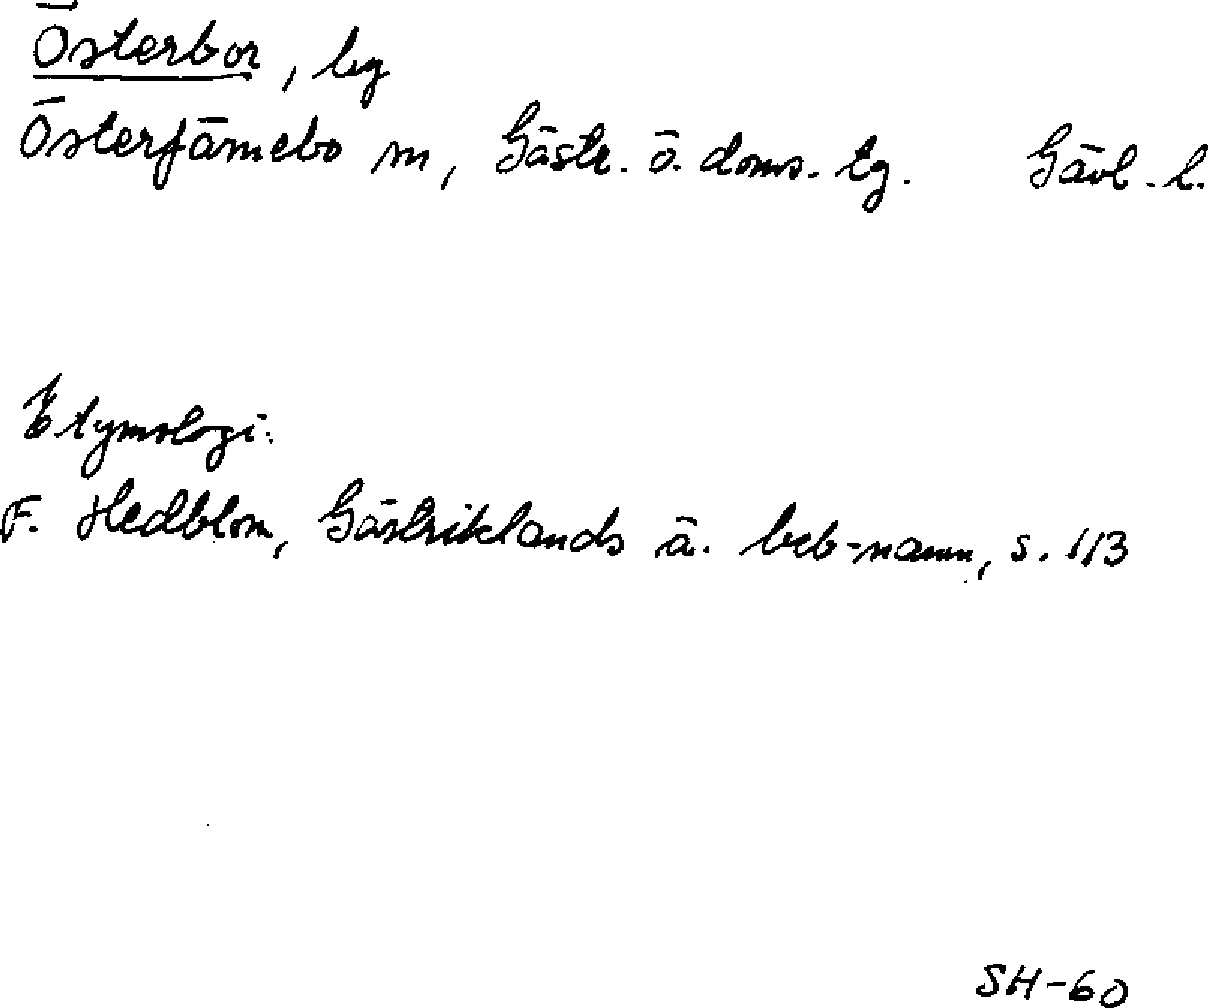 Österbor, by
Österfärnebo sn, Gästr. ö. doms. tg. Gävl. l.
Etymologi:
F. Hedblom, Gästriklands ä. beb-namn, s. 113
SH-60